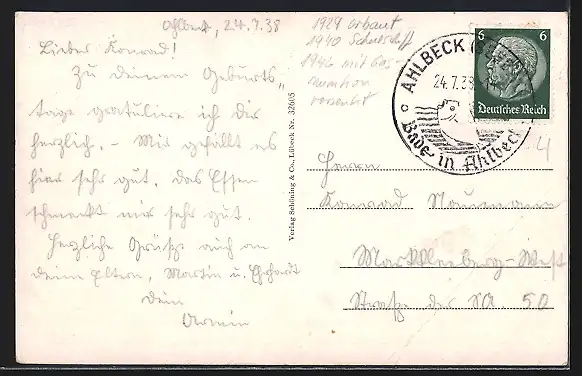 Ahlbeck, 24.7.38
Lieber Konrad!
Zu deinem Geburts-
tage gratuliere ich dir
herzlich. - Mir gefällt es
hier sehr gut. das Essen
schmeckt mir sehr gut.
Herzliche Grüße auch an
deine Eltern, Martin u. Ehrhardt
dein
Armin
Verlag Schöning & Co., Lübeck Nr. 32605
1929 erbaut
1940
1946 mit
AHLBECK
24.7.38
Bade in Ahlbeck
6 6
Deutsches Reich
Herrn
Konrad Naumann
Markkleeberg-West
Straße der SA. 50
4